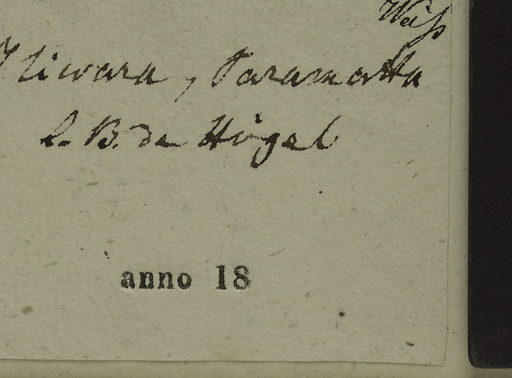 Weiß
Illiwara, Paramatta
L. B. de Hügel
anno 18